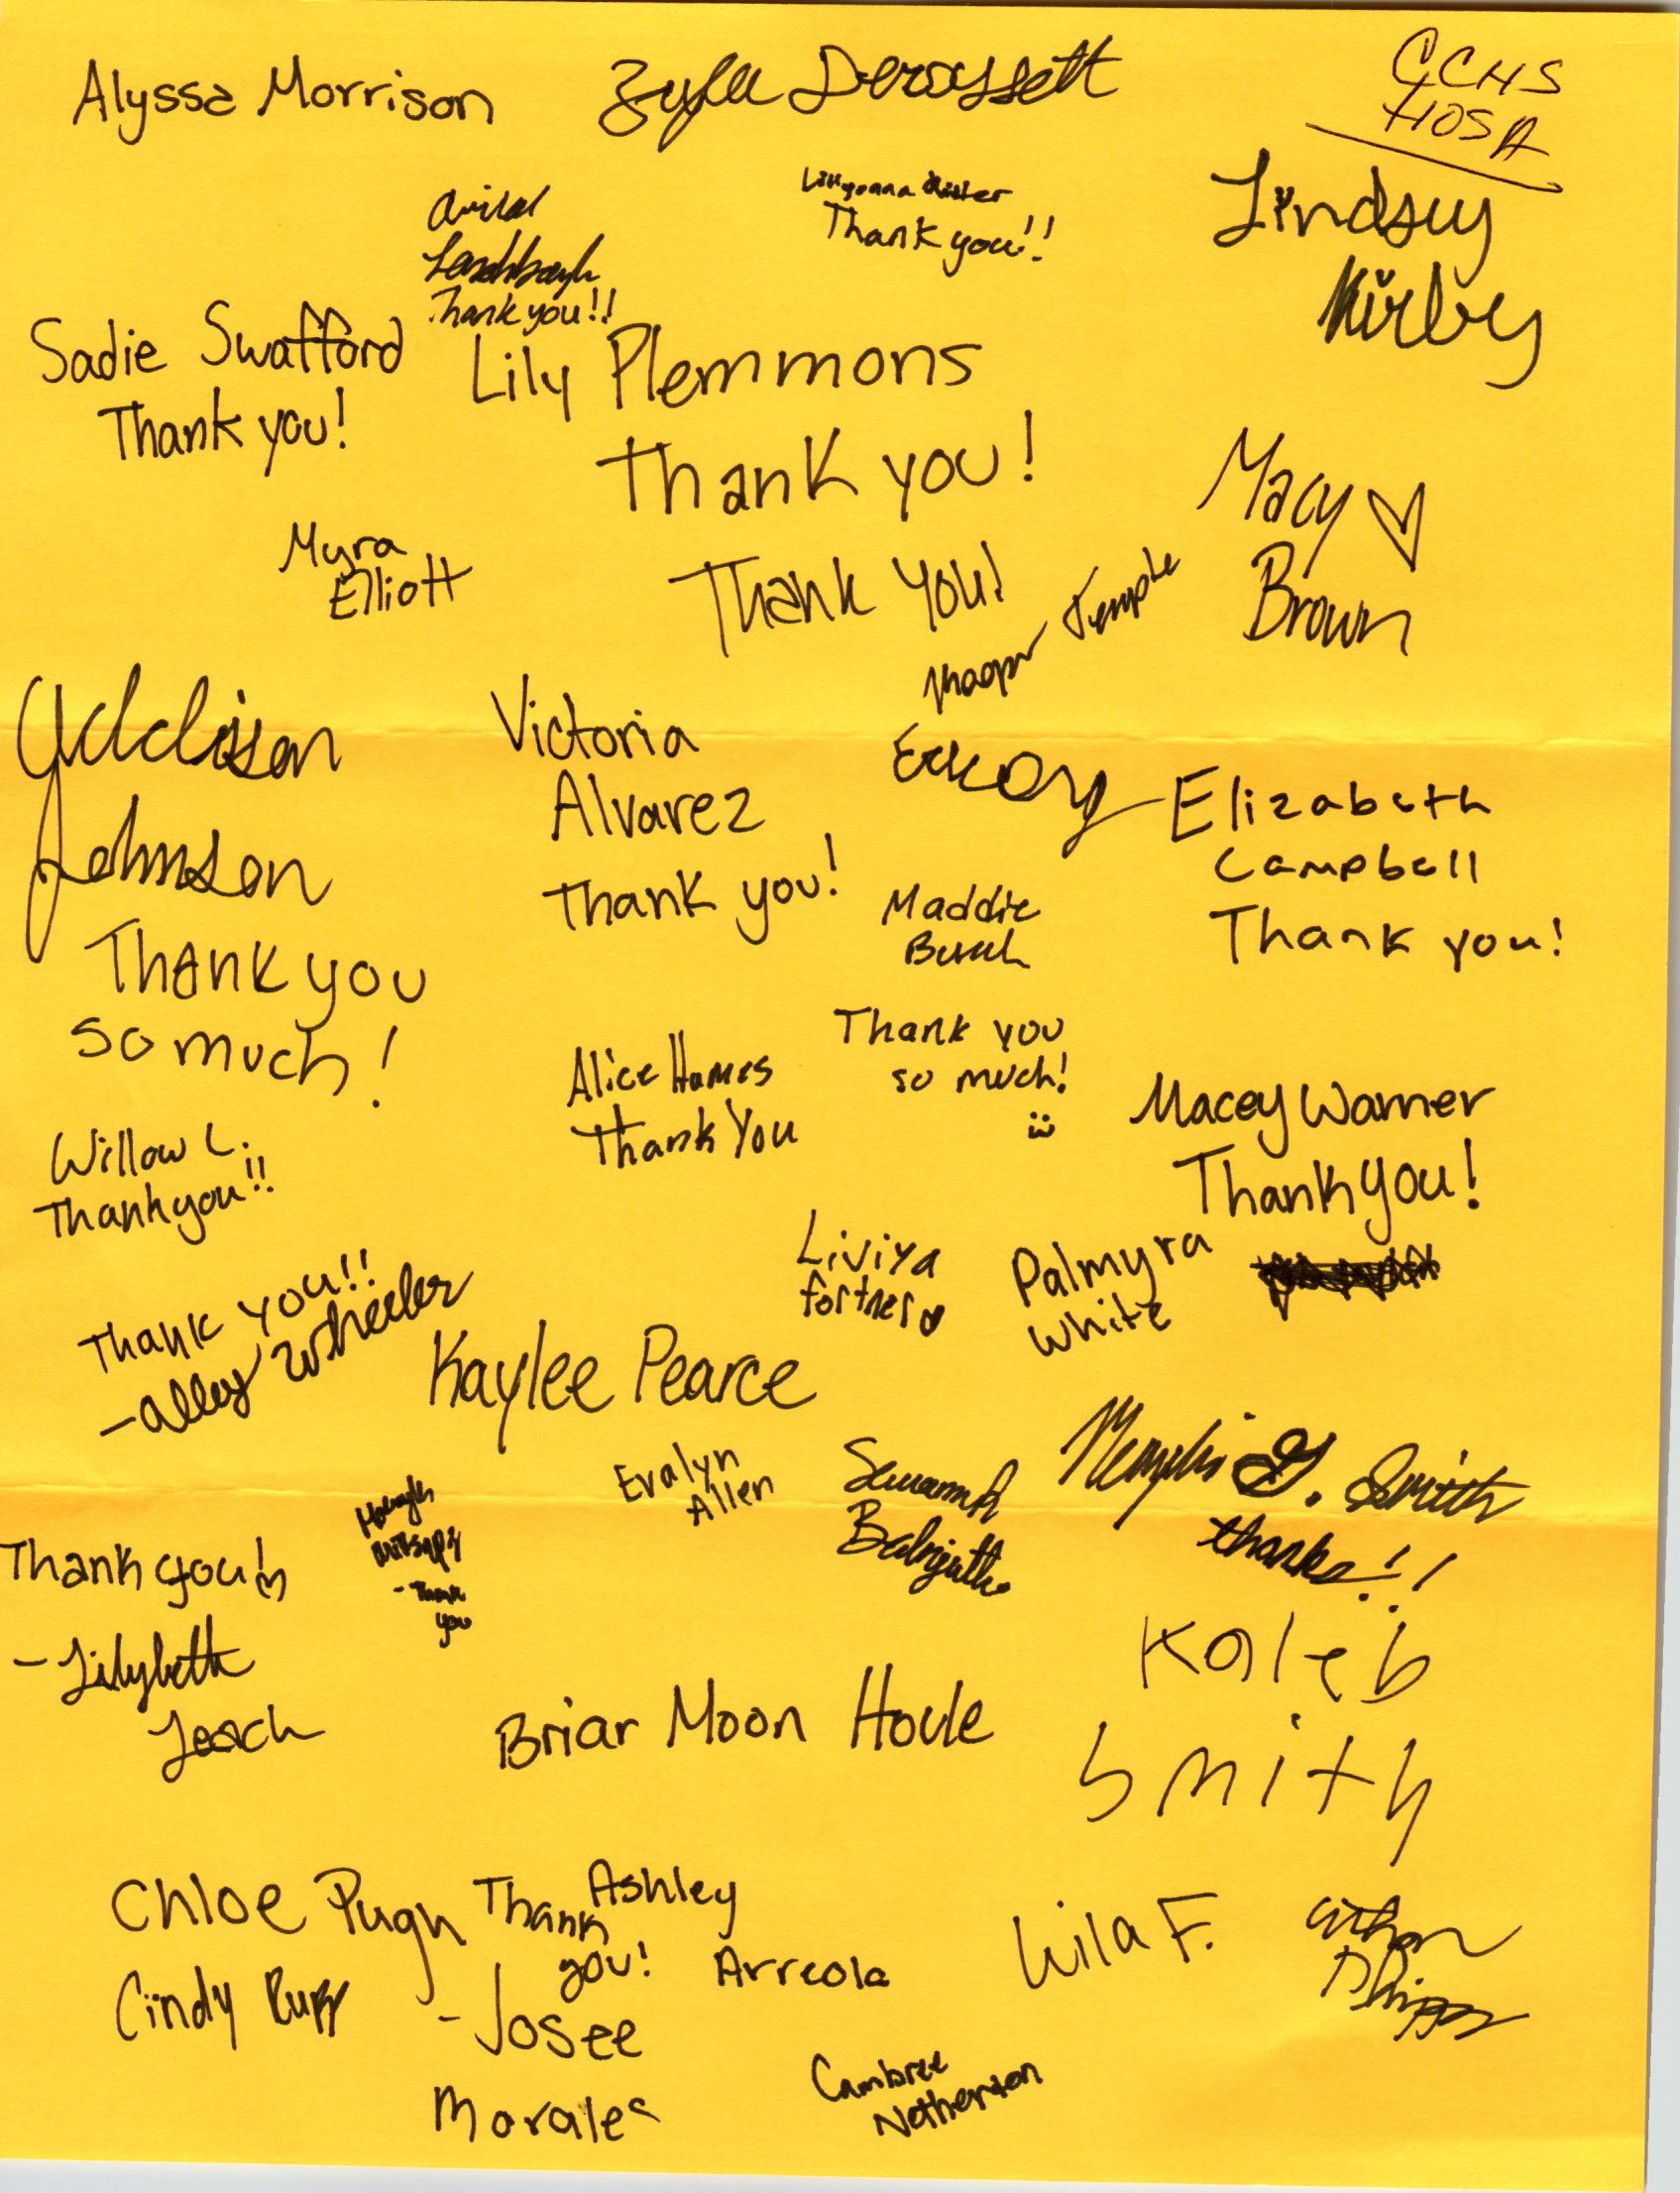 Alyssa Morrison
Zyla Derossett
GCHS
HOSA
Lillyanna
Thank you!!
Lindsey
Kirby
Thank you!!
Sadie Swafford
Thank you!
Lily Plemmons
Thank you!
Macy ♡
Brown
Myra
Elliott
Thank you!
Temple
Addison
Johnson
Thank you
so much!
Victoria
Alvarez
Thank you!
Elizabeth
Campbell
Thank you!
Maddie
Thank you
so much!
:)
Alice Hames
Thank You
Macey Warner
Thank you!
Willow L.
Thank you!!
Thank you!!
- alley Wheeler
Liviya
fortner ♡
Palmyra
White
Kaylee Pearce
Evalyn
Allen
Savannah
Memphis G. Smith
thanks!!
Thank you!
- Lilybeth
Leach
- Thank
you
Kaleb
Smith
Briar Moon Houle
Chloe Pugh
Cindy
Thank
you!
- Josee
Morales
Ashley
Arreola
Lila F.
Ethan
Phipps
Cambree
Netherton